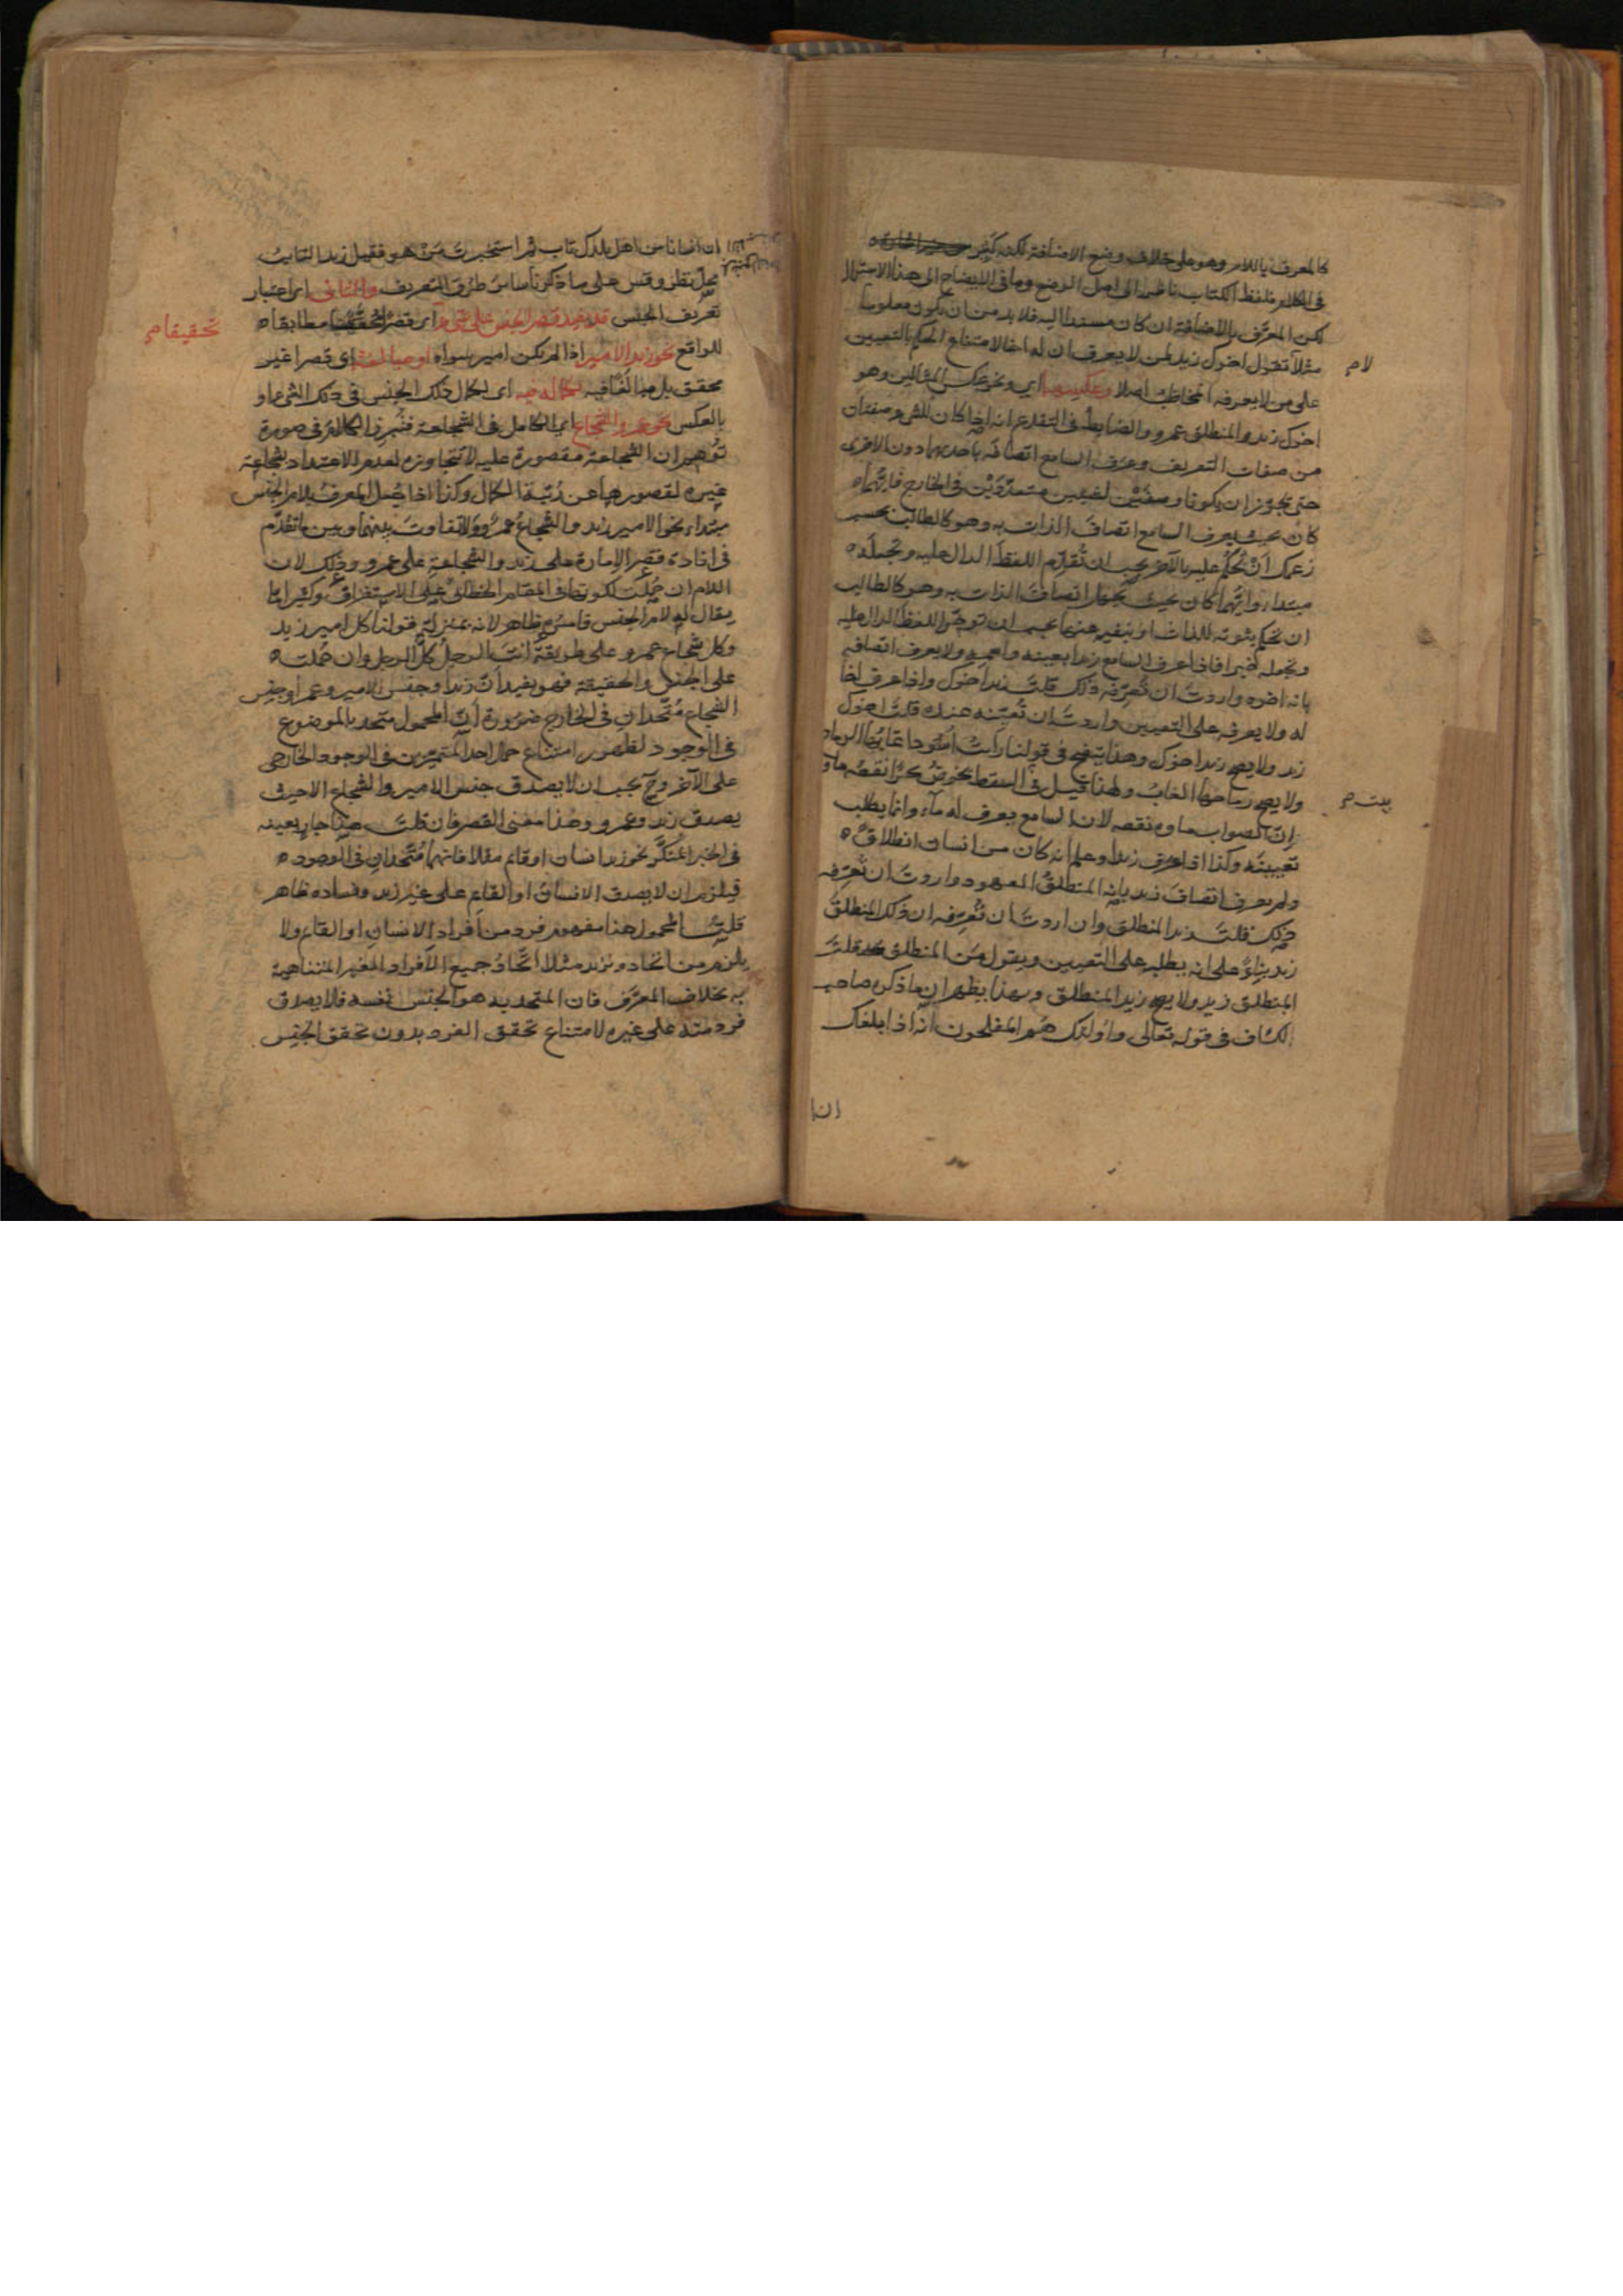 كالمعرف باللام وهو على خلاف وضع الاضافة لكنه كثير
فى الكلام فلفظ الكتاب ناظر الى اصل الوضع وما فى الايضاح الى هذا الاستعمال
لكن المعرّف بالاضافة ان كان مسندا اليه فلا بد من ان يكون معلوما
مثلا لا تقول اخوك زيد لمن لا يعرف ان له اخا لامتناع الحكم بالتعيين
لام
على من لا يعرفه المخاطب اصلا وعكسهما اى ونحو عكس المثالين وهو
اخوك زيد والمنطلق عمرو والضابط فى التقديم انه اذا كان للشئ صفتان
من صفات التعريف وعرف السامع اتصافه باحديهما دون الاخرى
حتى يجوز ان يكونا وصفين لشيئين متعددين فى الخارج فايهما
كان بحيث يعرف السامع اتصاف الذات به وهو كالطالب بحسب
زعمك ان تحكم عليه بالآخر يجب ان تقدم اللفظ الدال عليه وتجعله
مبتداء وايهما كان بحيث يجهل اتصاف الذات به وهو كالطالب
ان تحكم بثبوته للذات او بنفيه عنها يجب ان تؤخر اللفظ الدال عليه
وتجعله خبرا فاذا عرف السامع زيدا بعينه واسمه ولا يعرف اتصافه
بانه اخوه واردت ان تعرّفه ذلك قلت زيد اخوك واذا عرف اخا
له ولا يعرفه على التعيين واردت ان تعينه عنده قلت اخوك
زيد ولا يصح زيد اخوك وهذا يتضح فى قولنا رايت اسودا غابها الرماح
ولا يصح رماحها الغاب ولهذا قيل فى السقط يخوض بحرا نقعه ماؤه
بيت
ان الصواب ماؤه نقعه لان السامع يعرف له ماء وانما يطلب
تعيينه وكذا اذا عرف زيدا وعلم انه كان من انسان انطلاق
ولم يعرف اتصاف زيد بانه المنطلق المعهود واردت ان تعرّفه
ذلك قلت زيد المنطلق وان اردت ان تعرّفه ان ذلك المنطلق
زيد بناء على انه يطلبه على التعيين ويقول من المنطلق قلت
المنطلق زيد ولا يصح زيد المنطلق وبهذا يظهر ان ما ذكره صاحب
الكشاف فى قوله تعالى واولئك هم المفلحون انه اذا بلغك
ان انسانا من اهل بلدك تاب ثم استخبرت من هو فقيل زيد التايب
محل نظر وقس على ما ذكرنا سائر طرق التعريف والثانى اى اعتبار
تعريف الجنس قد يفيد قصر الجنس على شئ اى قصرا مطابقا
تحقيقا
للواقع نحو زيد الامير اذا لم يكن امير سواه او مبالغة اى قصرا غير
محقق بل مبالغا فيه لكماله فيه اى لكمال ذلك الجنس فى ذلك الشئ او
بالعكس نحو عمرو الشجاع اى الكامل فى الشجاعة فتبرز الكلام فى صورة
توهم ان الشجاعة مقصورة عليه لا تتجاوزه لعدم الاعتداد بشجاعة
غيره لقصورها عن رتبة الكمال وكذا اذا جعل المعرف بلام الجنس
مبتداء نحو الامير زيد والشجاع عمرو ولا تفاوت بينهما وبين ما تقدم
فى افادة قصر الامارة على زيد والشجاعة على عمرو وذلك لان
اللام ان حملت لكونها فى المقام الخطابى على الاستغراق وكثيرا ما
يقال له لام الجنس فامره ظاهر لانه بمنزلة قولنا كل امير زيد
وكل شجاع عمرو على طريقة انت الرجل كل الرجل وان حملت
على الجنس والحقيقة فهو يفيد ان زيدا وجنس الامير وعمرا وجنس
الشجاع متحدان فى الخارج ضرورة ان المحمول متحد بالموضوع
فى الوجود لظهور امتناع حمل احد المتميزين فى الوجود الخارجى
على الآخر وح يجب ان لا يصدق جنس الامير والشجاع الا حيث
يصدق زيد وعمرو وهذا معنى القصر فان قلت هذا جار بعينه
فى الخبر المنكر نحو زيد انسان او قائم مثلا فانهما متحدان فى الوجود
فيلزم ان لا يصدق الانسان او القائم على غير زيد وفساده ظاهر
قلت المحمول هنا مفهوم فرد من افراد الانسان او القائم ولا
يلزم من اتحاده بزيد مثلا اتحاد جميع الافراد الغير المتناهية
به بخلاف المعرف فان المتحد به هو الجنس نفسه فلا يصدق
فرد منه على غيره لامتناع تحقق الفرد بدون تحقق الجنس